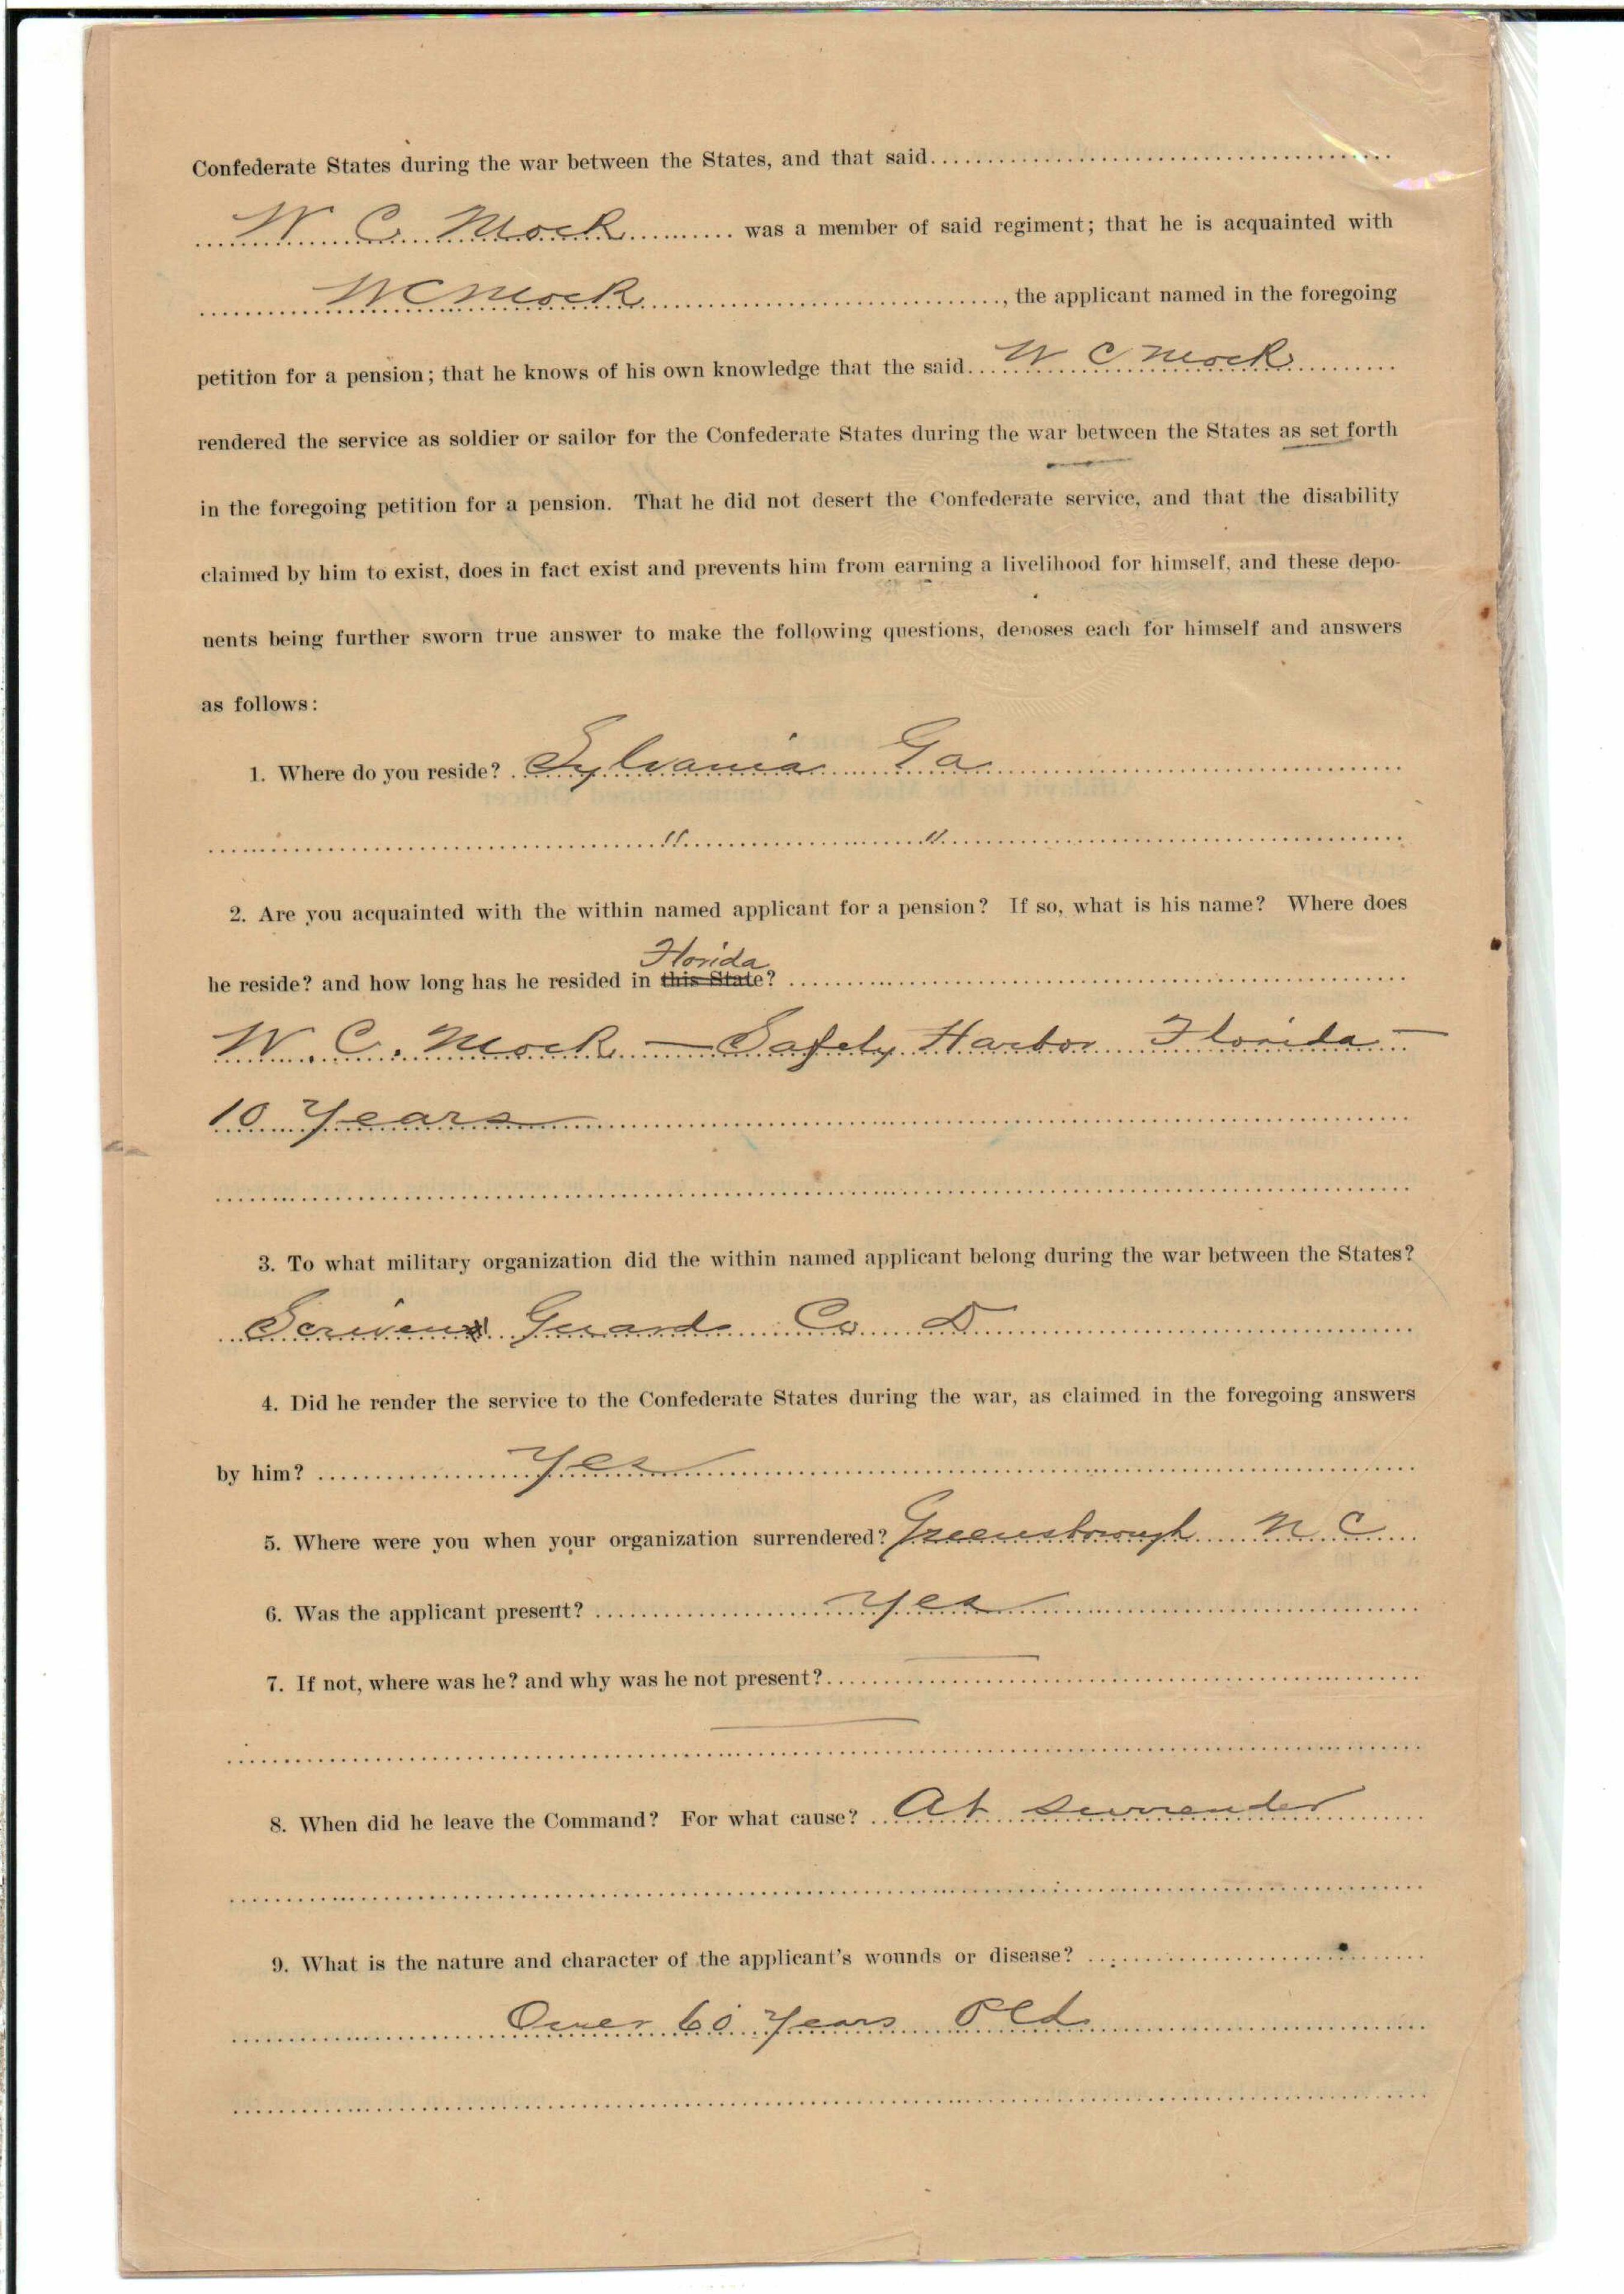 Confederate States during the war between the States, and that said
W. C. Mock was a member of said regiment; that he is acquainted with
W C Mock, the applicant named in the foregoing
petition for a pension; that he knows of his own knowledge that the said W C Mock
rendered the service as soldier or sailor for the Confederate States during the war between the States as set forth
in the foregoing petition for a pension. That he did not desert the Confederate service, and that the disability
claimed by him to exist, does in fact exist and prevents him from earning a livelihood for himself, and these depo-
nents being further sworn true answer to make the following questions, denoses each for himself and answers
as follows:
1. Where do you reside? Sylvania Ga
" "
2. Are you acquainted with the within named applicant for a pension? If so, what is his name? Where does
Florida
he reside? and how long has he resided in this State?
W. C. Mock — Safety Harbor Florida —
10 Years
3. To what military organization did the within named applicant belong during the war between the States?
Scriven Guards Co D
4. Did he render the service to the Confederate States during the war, as claimed in the foregoing answers
by him? Yes
5. Where were you when your organization surrendered? Greensborough N C
6. Was the applicant present? Yes
7. If not, where was he? and why was he not present?
8. When did he leave the Command? For what cause? At surrender
9. What is the nature and character of the applicant's wounds or disease?
Over 60 Years Old